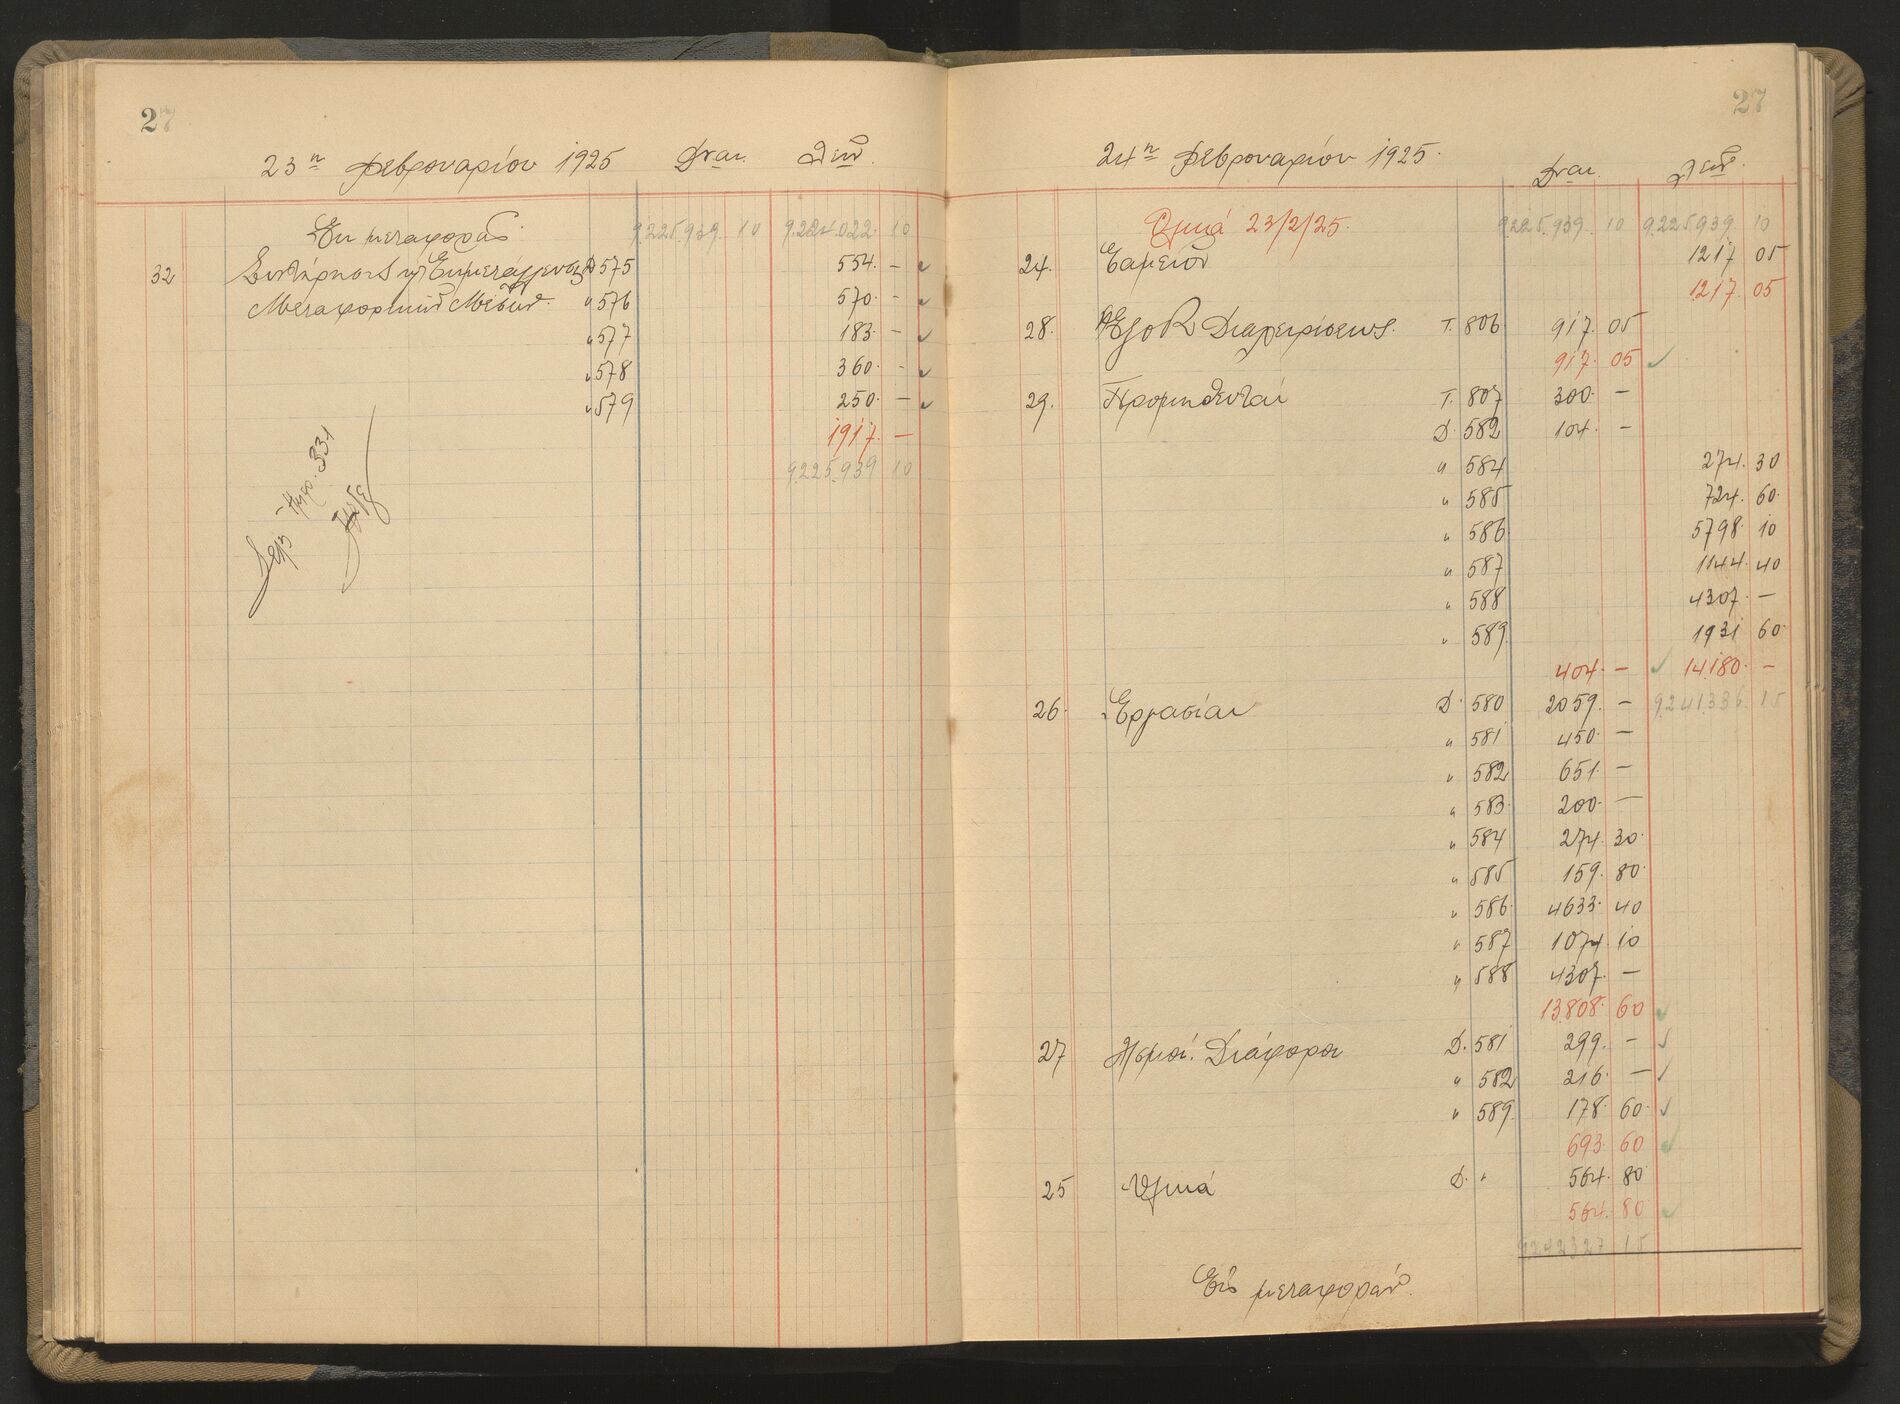 27
23η Φεβρουαρίου 1925
Εκ μεταφοράς 9.225.939 10 9.224.022 10
32 Συντήρησις κ/ Εκμετάλλευσις Δ 575 554 -
Μεταφορικών Μέσων " 576 570 -
" 577 183 -
" 578 360 -
" 579 250 -
1917 -
9.225.939 10
331
27
24η Φεβρουαρίου 1925
Υλικά 23/2/25 9.225.939 10 9.225.939 10
24. Ταμείον 1217 05
1217 05
28. Διαχειρίσεως Τ. 806 917 05
917 05
29. Προμηθευταί Τ. 807 300 -
Δ. 582 104 -
" 584 274 30
" 585 724 60
" 586 5798 10
" 587 1144 40
" 588 4307 -
" 589 1931 60
404 - 14.180 -
26. Εργασίαι Δ. 580 2059 - 9.241.336 15
" 581 450 -
" 582 651 -
" 583 200 -
" 584 274 30
" 585 159 80
" 586 4633 40
" 587 1074 10
" 588 4307 -
13.808 60
27 Διάφοροι Δ. 581 299 -
" 582 216 -
" 589 178 60
693 60
25 Υλικά Δ. " 564 80
564 80
9.242.327 15
Εις μεταφοράν